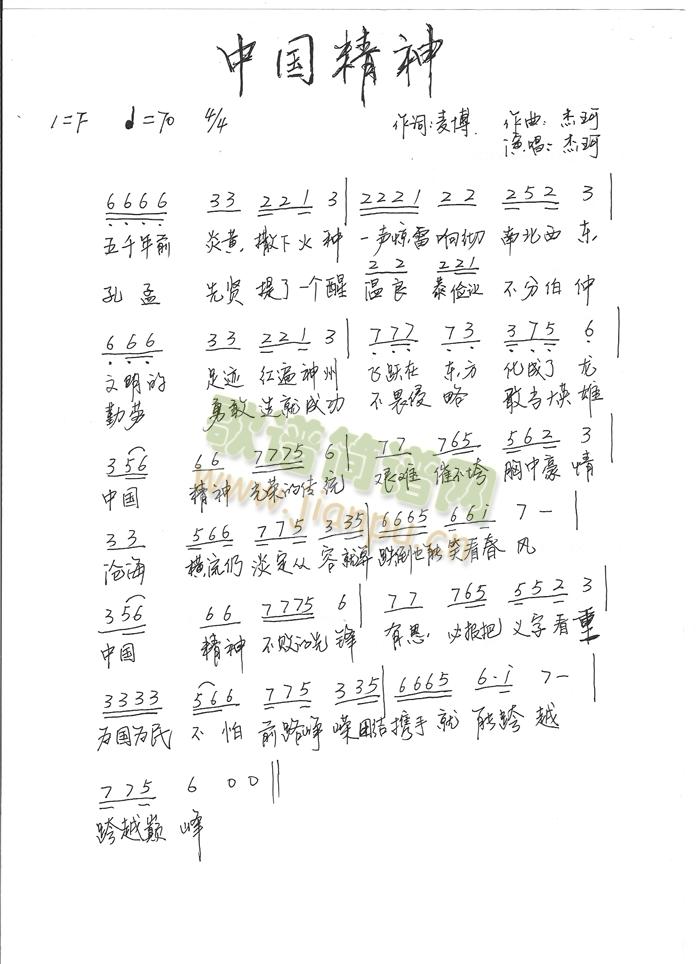 中国精神
1=F ♩=70 4/4 作词:麦博 作曲:杰珂
演唱:杰珂
6666 33 221 3 | 2221 22 252 3 |
五千年前 炎黄,撒下火种 一声惊雷响彻 南北西东,
22 221
孔孟 先贤 提了一个醒 温良 恭俭让 不分伯仲
666 33 221 3 | 777 73 375 6 |
文明的 足迹 红遍神州 飞跃在 东方 化成了 龙
勤劳 勇敢 造就成功 不畏侵略 敢当大英雄
356 66 7775 6 | 77 765 562 3 |
中国 精神 光荣的传统 艰难 催不垮 胸中豪情
33 566 775 335 | 6665 661 7 - |
沧海 横流仍 淡定从容就算 跌倒也能笑看春风
356 66 7775 6 | 77 765 552 3 |
中国 精神 不败的先锋 有恩,必报把 义字看重
3333 566 775 335 | 6665 6·i 7 - |
为国为民 不怕 前路峥嵘团结携手就 能跨越
775 6 0 0 ||
跨越巅峰
歌谱简谱网
www.jianpu.cn